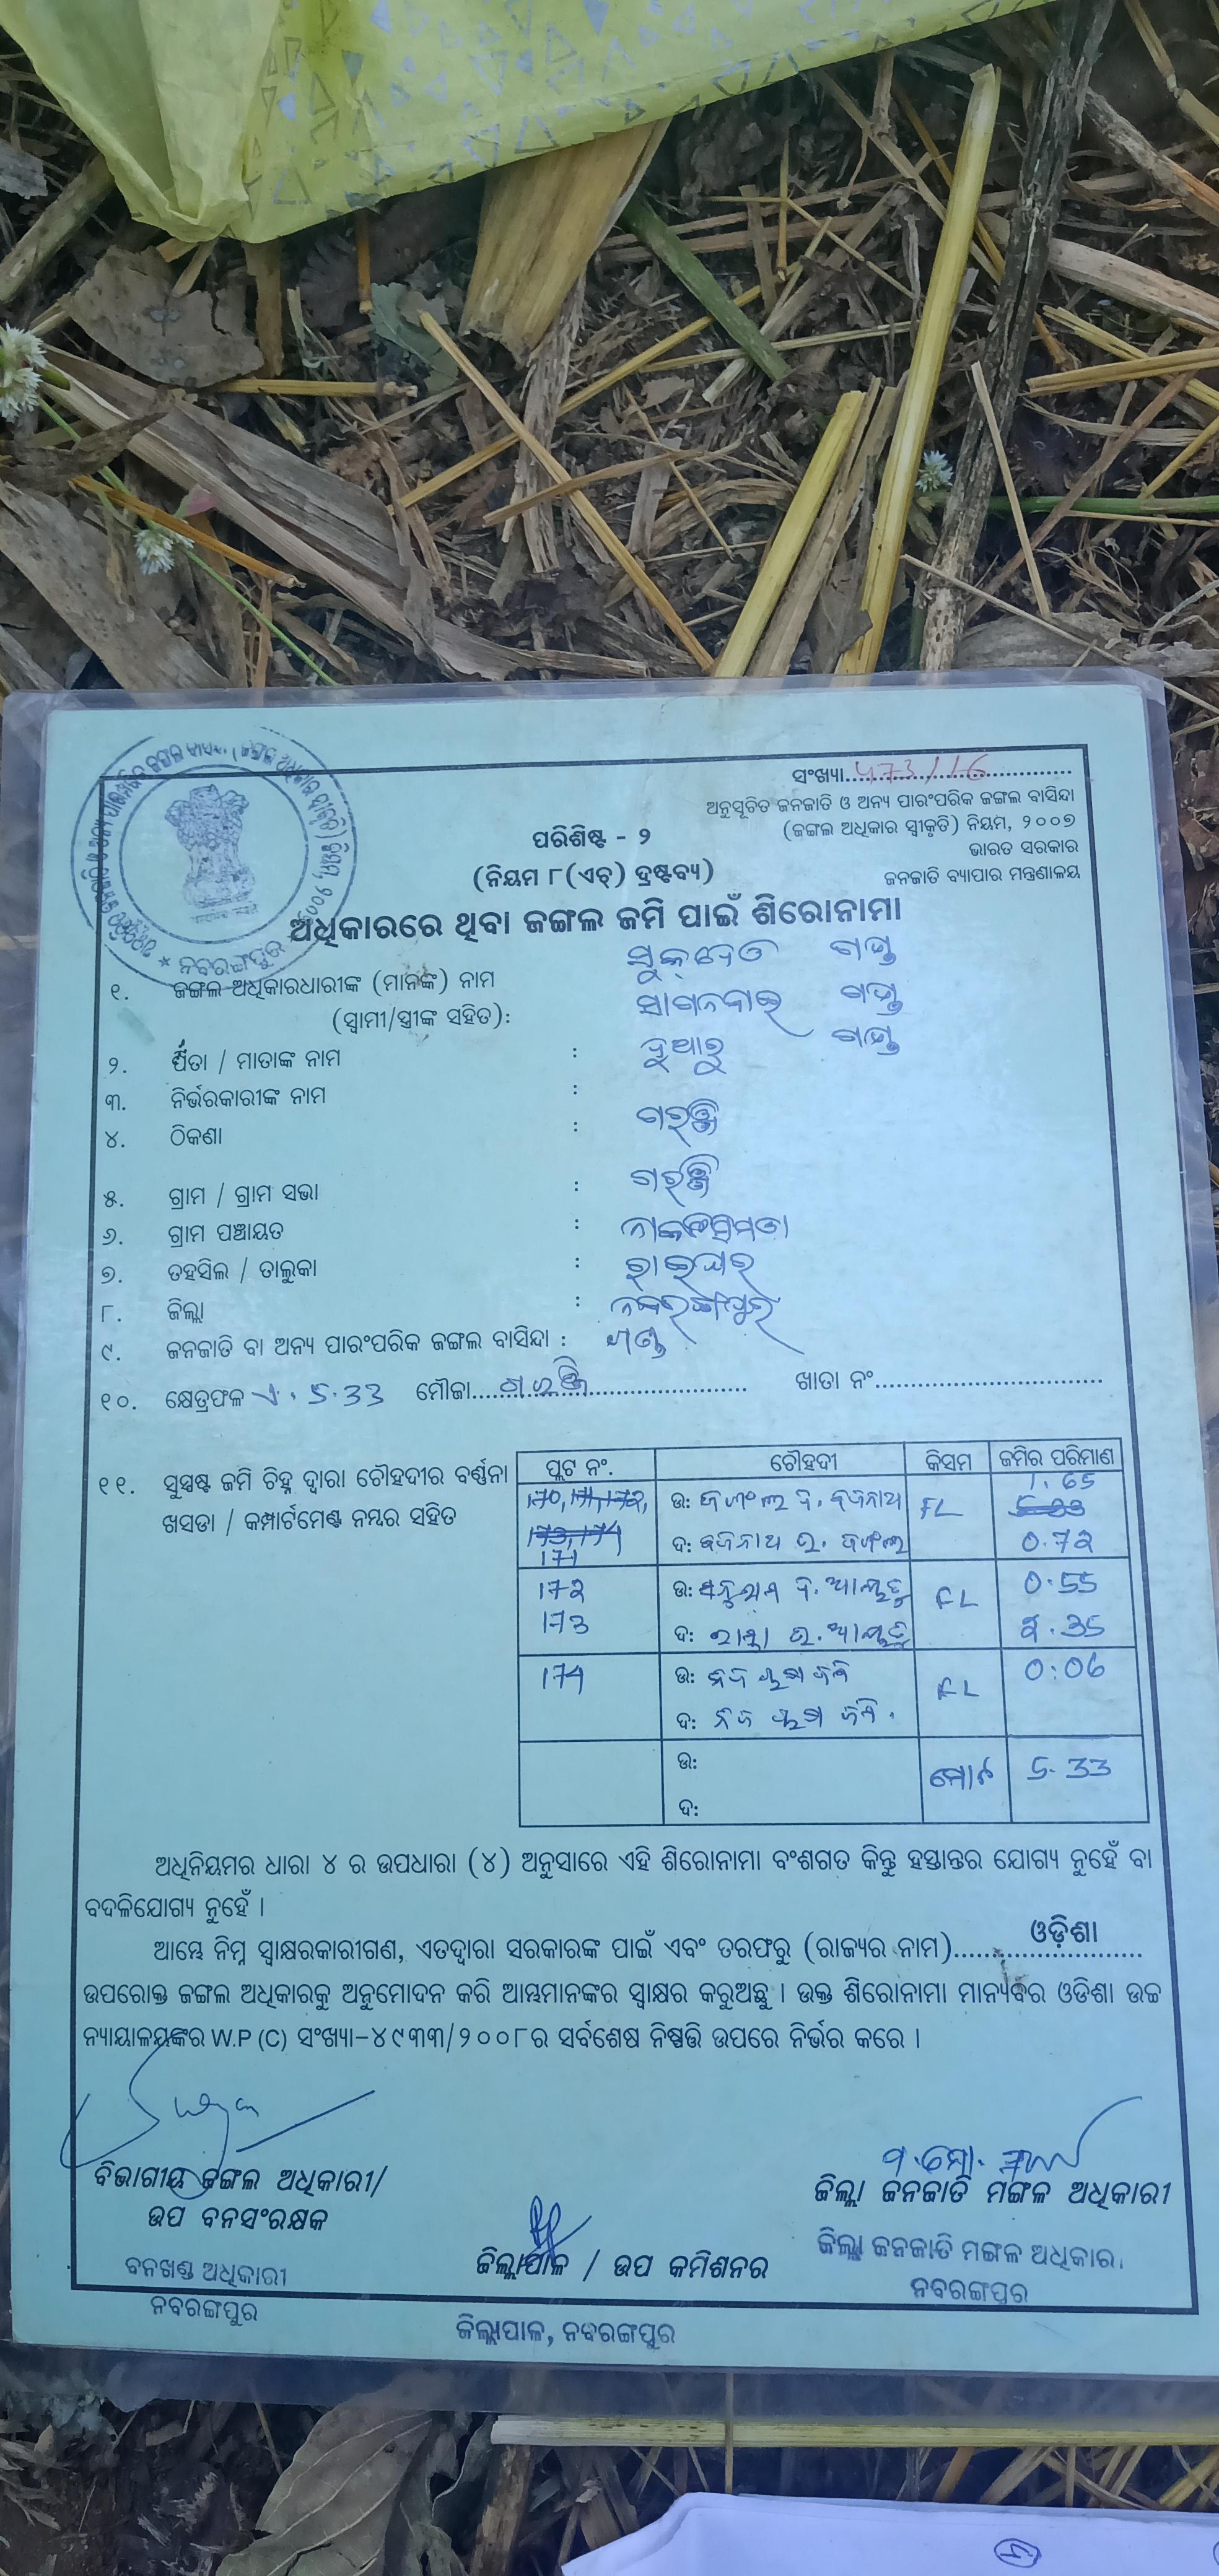 ସଂଖ୍ୟା....473/16....
ଅନୁସୂଚିତ ଜନଜାତି ଓ ଅନ୍ୟ ପାରଂପରିକ ଜଙ୍ଗଲ ବାସିନ୍ଦା
(ଜଙ୍ଗଲ ଅଧିକାର ସ୍ୱୀକୃତି) ନିୟମ, ୨୦୦୭
ଭାରତ ସରକାର
ଜନଜାତି ବ୍ୟାପାର ମନ୍ତ୍ରଣାଳୟ
ପରିଶିଷ୍ଟ - ୨
(ନିୟମ ୮(ଏଚ୍) ଦ୍ରଷ୍ଟବ୍ୟ)
ଅଧିକାରରେ ଥିବା ଜଙ୍ଗଲ ଜମି ପାଇଁ ଶିରୋନାମା
ନବରଙ୍ଗପୁର
୧. ଜଙ୍ଗଲ ଅଧିକାରଧାରୀଙ୍କ (ମାନଙ୍କ) ନାମ ସୁକ୍‌ଦେଓ ଗଣ୍ଡ
(ସ୍ୱାମୀ/ସ୍ତ୍ରୀଙ୍କ ସହିତ): ସାଗନବାଇ ଗଣ୍ଡ
୨. ପିତା / ମାତାଙ୍କ ନାମ : ଦୁଆରୁ ଗଣ୍ଡ
୩. ନିର୍ଭରକାରୀଙ୍କ ନାମ :
୪. ଠିକଣା : ଗରଞ୍ଜି
୫. ଗ୍ରାମ / ଗ୍ରାମ ସଭା : ଗରଞ୍ଜି
୬. ଗ୍ରାମ ପଞ୍ଚାୟତ :
୭. ତହସିଲ / ତାଲୁକା : ରାଇଘର
୮. ଜିଲ୍ଲା : ନବରଙ୍ଗପୁର
୯. ଜନଜାତି ବା ଅନ୍ୟ ପାରଂପରିକ ଜଙ୍ଗଲ ବାସିନ୍ଦା : ଗଣ୍ଡ
୧୦. କ୍ଷେତ୍ରଫଳ ଏ. 5.33 ମୌଜା....ଗରଞ୍ଜି.... ଖାତା ନଂ....
୧୧. ସୁସ୍ପଷ୍ଟ ଜମି ଚିହ୍ନ ଦ୍ୱାରା ଚୌହଦୀର ବର୍ଣ୍ଣନା
ଖସଡା / କମ୍ପାର୍ଟମେଣ୍ଟ ନମ୍ବର ସହିତ
ପ୍ଲଟ ନଂ. ଚୌହଦୀ କିସମ ଜମିର ପରିମାଣ
170, 171, 172, ଉ: ଜଙ୍ଗଲ ଦ. ବଜନାଥ FL 1.65
173, 174 5.33
171 ଦ: ବଜିନାଥ ଉ. ଜଙ୍ଗଲ 0.72
172 ଉ: FL 0.55
173 ଦ: 2.35
174 ଉ: ନିଜ ଜମି FL 0.06
ଦ: ନିଜ ଜମି.
ଉ: ମୋଟ 5.33
ଦ:
ଅଧିନିୟମର ଧାରା ୪ ର ଉପଧାରା (୪) ଅନୁସାରେ ଏହି ଶିରୋନାମା ବଂଶଗତ କିନ୍ତୁ ହସ୍ତାନ୍ତର ଯୋଗ୍ୟ ନୁହେଁ ବା
ବଦଳିଯୋଗ୍ୟ ନୁହେଁ ।
ଆମ୍ଭେ ନିମ୍ନ ସ୍ୱାକ୍ଷରକାରୀଗଣ, ଏତଦ୍ୱାରା ସରକାରଙ୍କ ପାଇଁ ଏବଂ ତରଫରୁ (ରାଜ୍ୟର ନାମ)....ଓଡ଼ିଶା....
ଉପରୋକ୍ତ ଜଙ୍ଗଲ ଅଧିକାରକୁ ଅନୁମୋଦନ କରି ଆମ୍ଭମାନଙ୍କର ସ୍ୱାକ୍ଷର କରୁଅଛୁ । ଉକ୍ତ ଶିରୋନାମା ମାନ୍ୟବର ଓଡିଶା ଉଚ୍ଚ
ନ୍ୟାୟାଳୟଙ୍କର W.P (C) ସଂଖ୍ୟା-୪୯୩୩/୨୦୦୮ର ସର୍ବଶେଷ ନିଷ୍ପତ୍ତି ଉପରେ ନିର୍ଭର କରେ ।
ବିଭାଗୀୟ ଜଙ୍ଗଲ ଅଧିକାରୀ/
ଉପ ବନସଂରକ୍ଷକ
ବନଖଣ୍ଡ ଅଧିକାରୀ
ନବରଙ୍ଗପୁର
ଜିଲ୍ଲାପାଳ / ଉପ କମିଶନର
ଜିଲ୍ଲାପାଳ, ନବରଙ୍ଗପୁର
ଜିଲ୍ଲା ଜନଜାତି ମଙ୍ଗଳ ଅଧିକାରୀ
ଜିଲ୍ଲା ଜନଜାତି ମଙ୍ଗଳ ଅଧିକାରୀ
ନବରଙ୍ଗପୁର